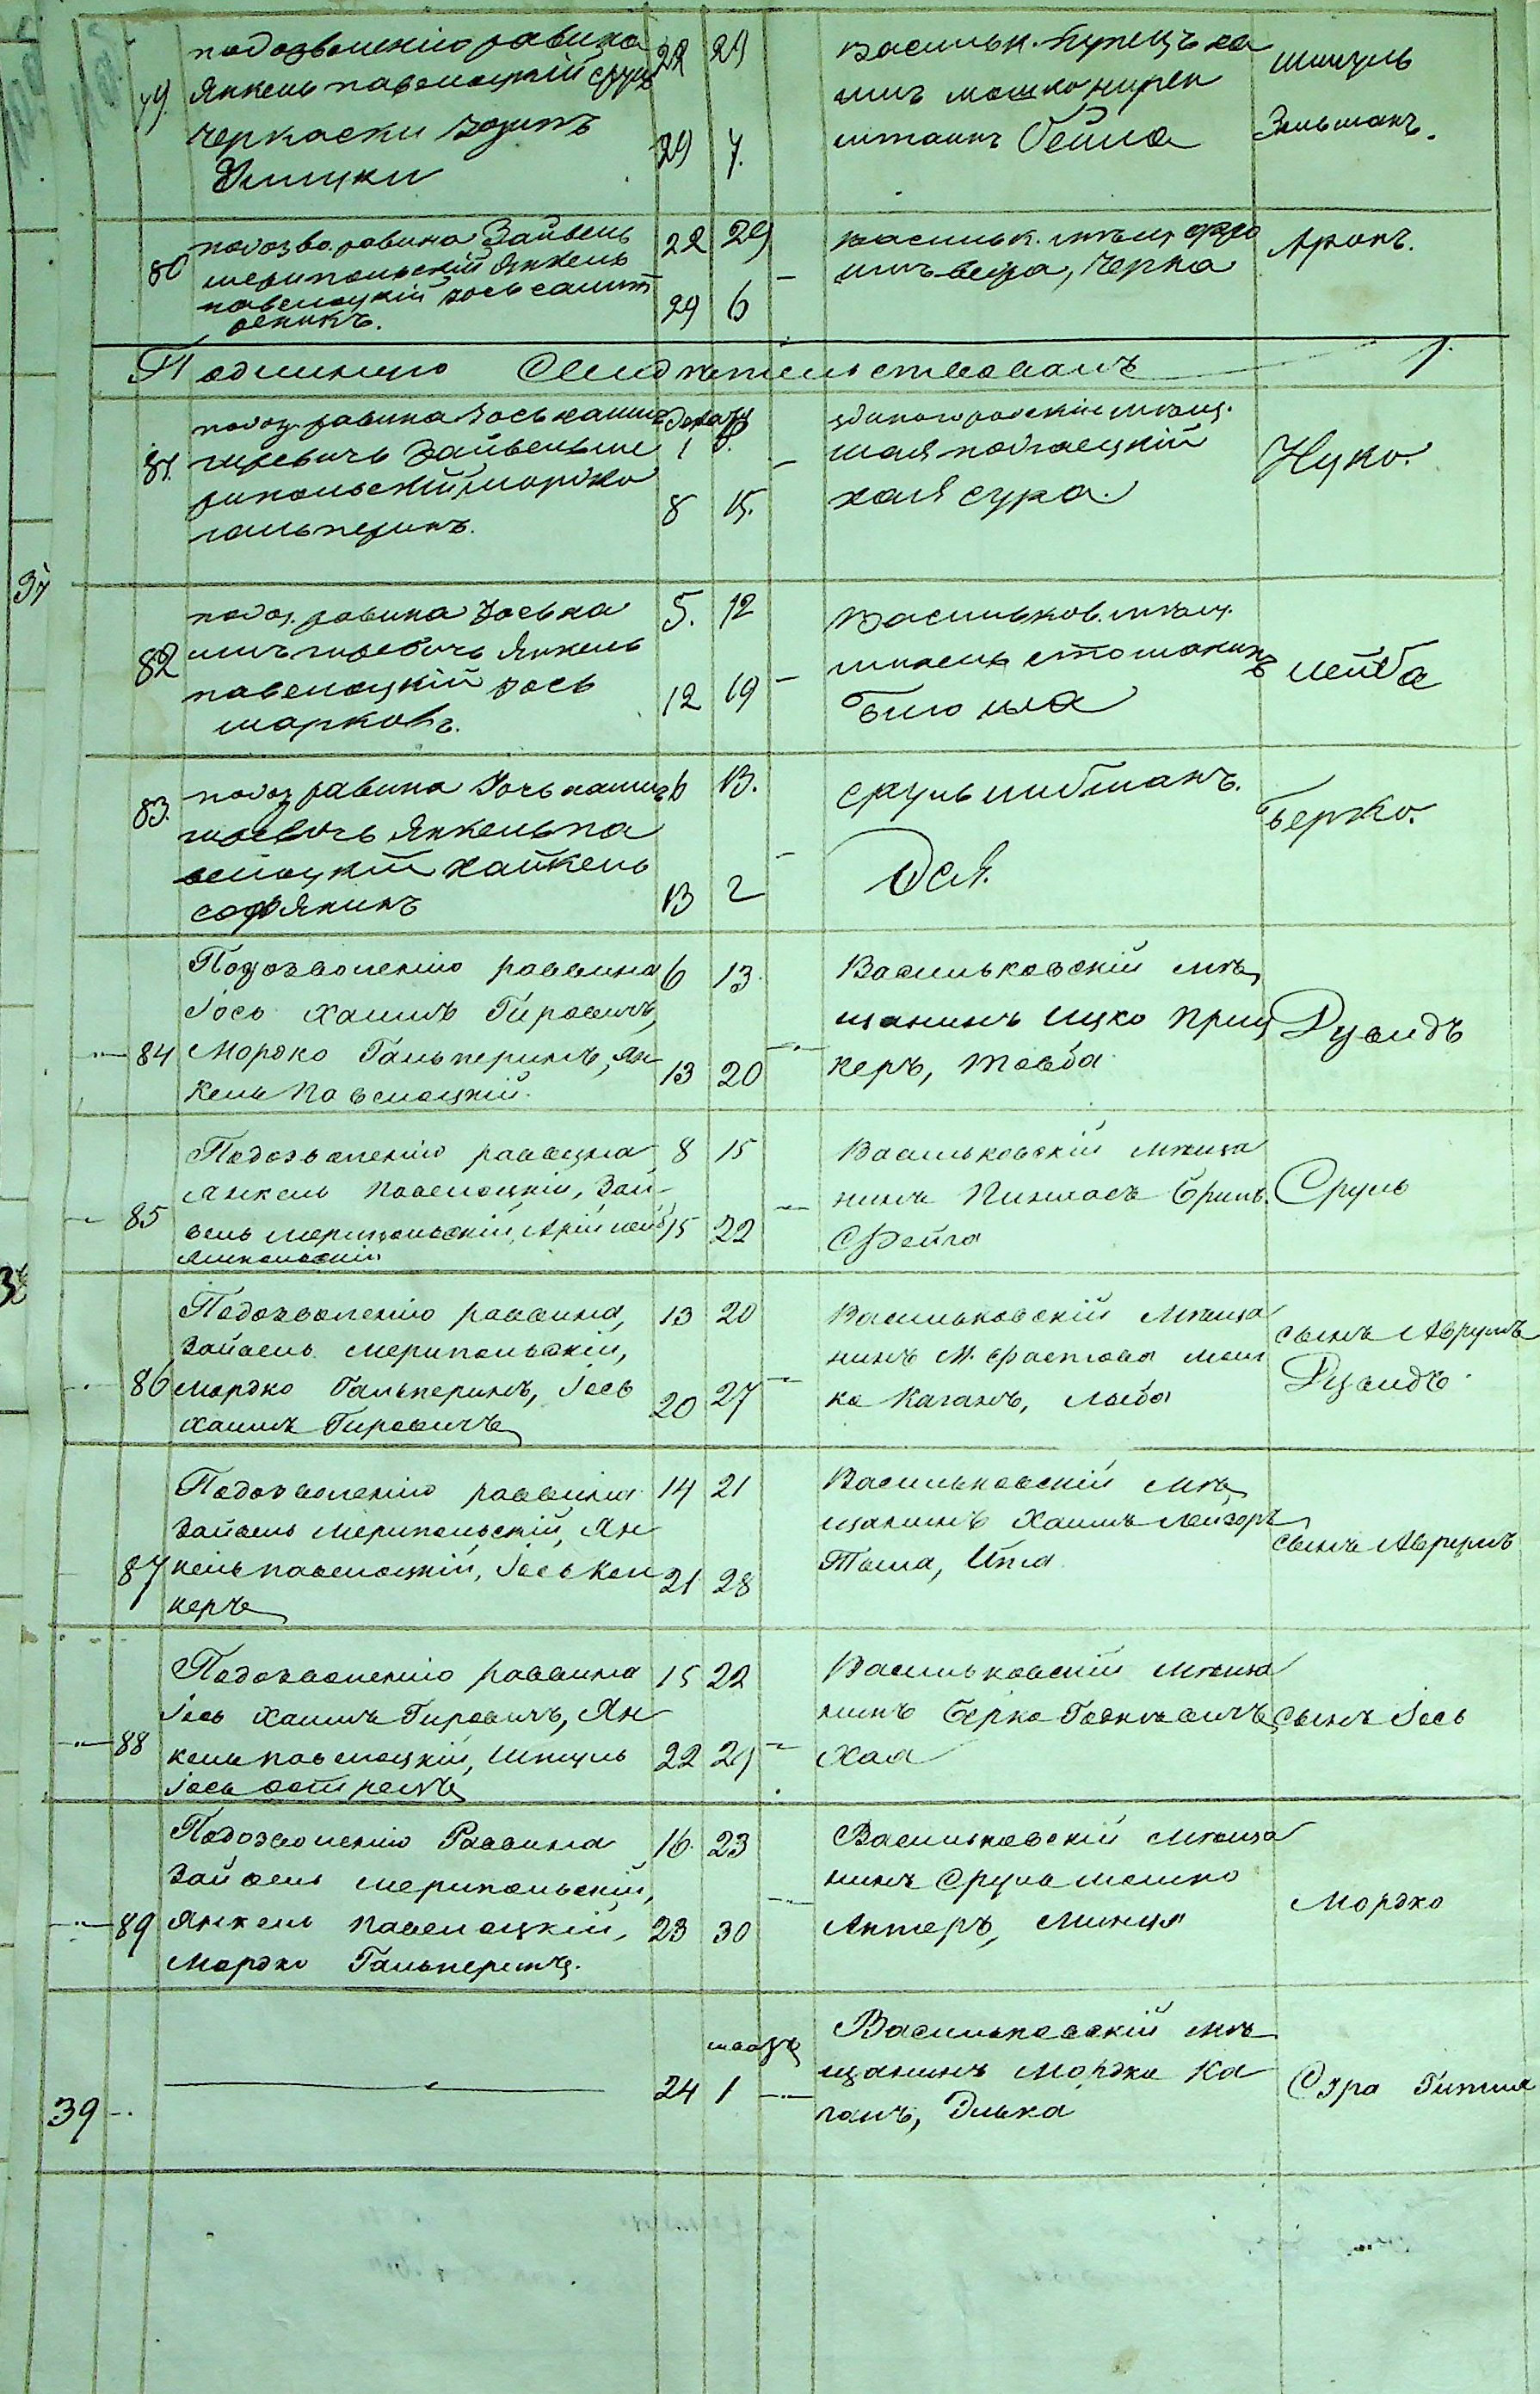 подозволенію равина
79. Янкель павелоцкій Сруль
Черкаски
22 29
29 7.
Васильк. Купецъ ха
имъ мошко
Бейла
Шмуль
Зельманъ.
80 подозво. равина Зайвель
мерипольскій Янкель
павелоцкій Іось
22 29
29 6
Васильк. мѣщ. Фро
имъ вера, Черна
Аронъ.
Подлинно Свидѣтельствовалъ
81. подоз. равина Іось хаимъ
гиревичъ Зайвель ме
рипольскій, мордко
гальперинъ.
1 8.
8 15.
мѣщ.
шая подгаецкій
хая сура.
Нуко.
37
82 подоз. равина Іось ха
имъ гиревичъ Янкель
павелоцкій Іось
марковъ.
5. 12
12 19
Васильков. мѣщ.
Блюма
лейба
83. подоз равина Іось хаимъ
гиревичъ Янкель па
велоцкій хайкель
сафянинъ
6 13.
13 2
Сруль либманъ.
Ося.
Берко.
84 Подозволенію раввина
Іось Хаимъ Гировичъ,
Мордко Гальперинъ, Ян
кель Павелоцкій.
6 13.
13 20
Васильковскій мѣ
щанинъ ИцкоПриц
керъ, Товба
Дувидъ
85 Подозволенію раввина
Янкель Павелоцкій, Зай
вель Мерипольскій, Арій лейб
8 15
15 22
Васильковскій мѣща
нинъ Пинхасъ Брил.
Фейга
Сруль
86 Подозволенію раввина,
Зайвель Мерипольскій,
Мордко Гальперинъ, Іось
Хаимъ Гировичъ
13 20
20 27
Васильковскій мѣща
нинъ М. Фастова Мош
ко Каганъ, Люба
сынъ Аврумъ
Дувидъ
87 Подозволенію раввина
Зайвель Мерипольскій, Ян
кель павелоцкій, Іось Кел
керъ
14 21
21 28
Васильковскій мѣ
щанинъ Хаимъ Лейзоръ
Тома, Ита
сынъ Аврумъ
88 Подозволенію раввина
Іось Хаимъ Гировичъ, Ян
кель павелоцкій, Шмуль
Іось
15 22
22 29
Васильковскій мѣща
нинъ Берко
Хая
сынъ Іось
89 Подозволенію Раввина
Зайвель Мерипольскій,
Янкель Павелоцкій,
Мордко Гальперинъ.
16 23
23 30
Васильковскій мѣща
нинъ Сруль Мошко
Актеръ, Минця
Мордко
39
24 1
Васильковскій мѣ
щанинъ Мордко Ка
ганъ, Элька
Сура Гитля